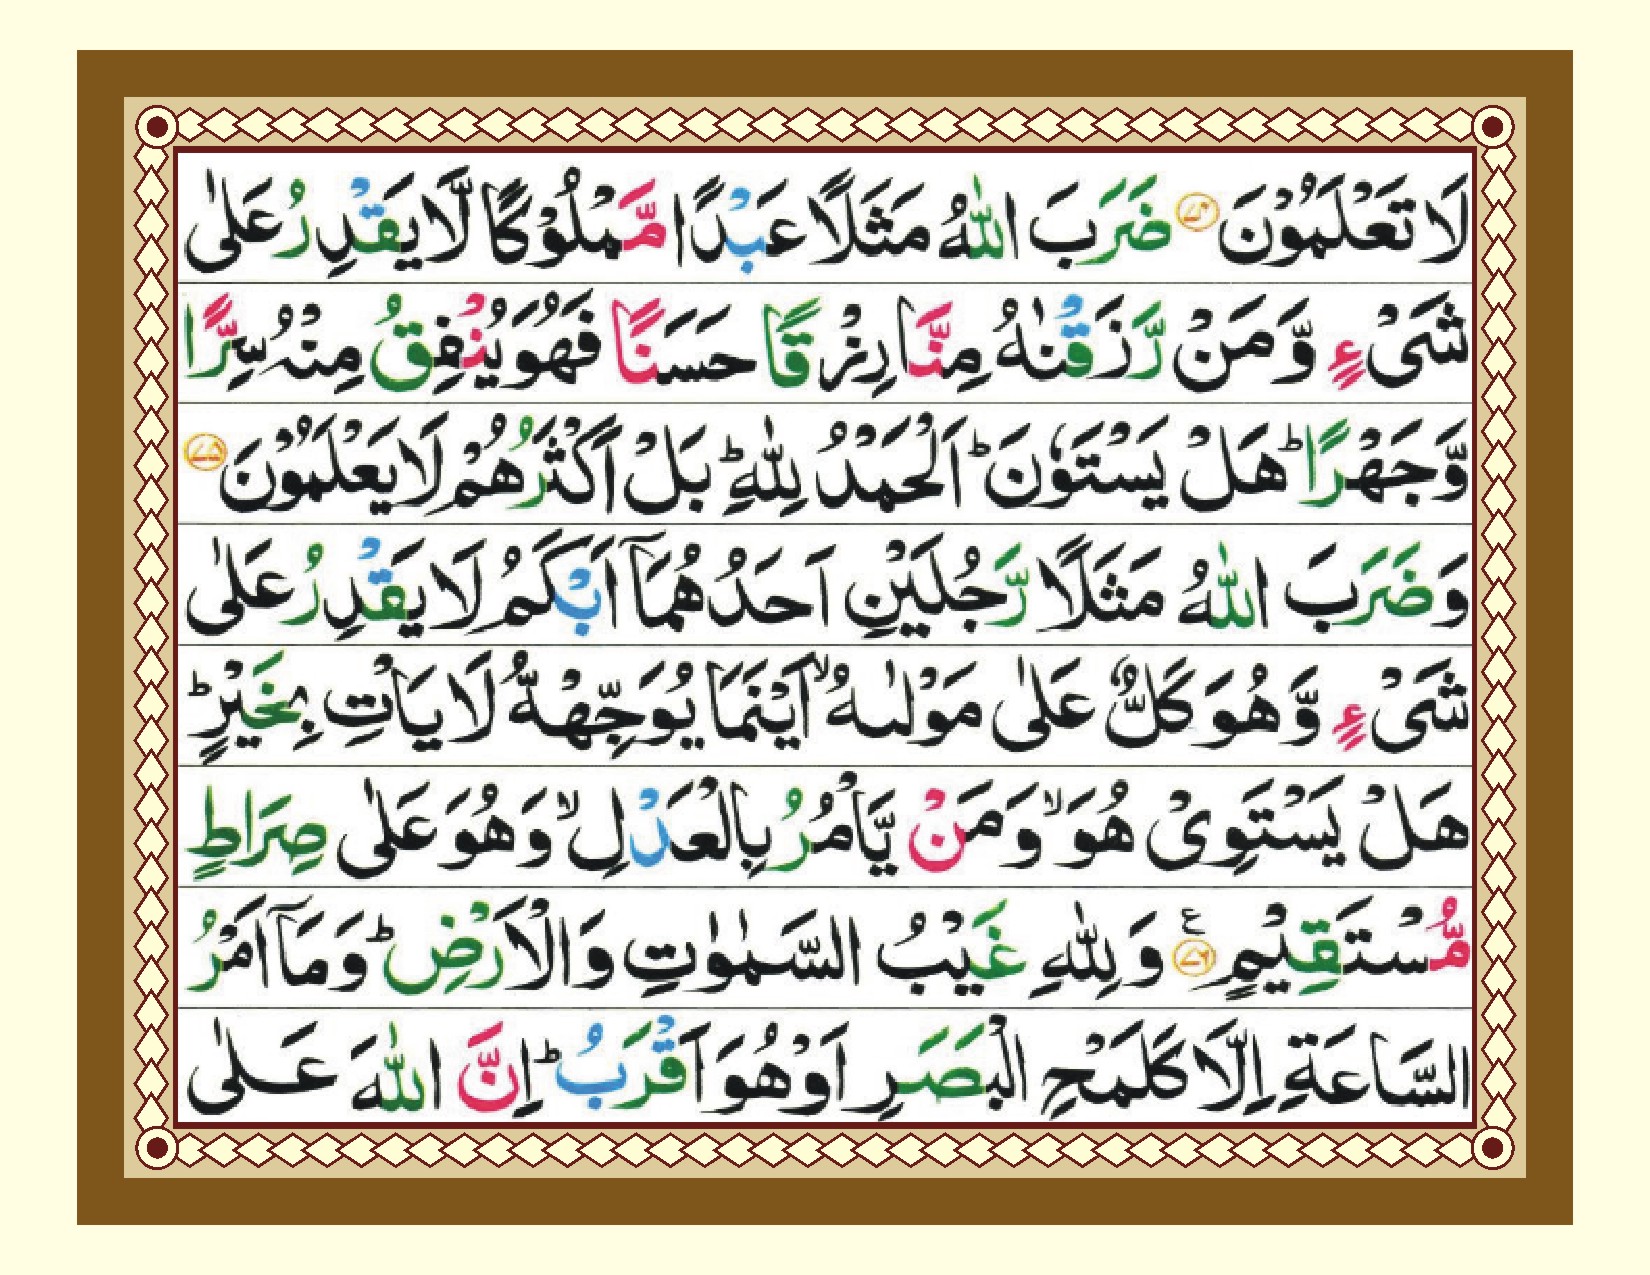 لَا تَعْلَمُوْنَ ﴿۷۴﴾ ضَرَبَ اللّٰهُ مَثَلًا عَبْدًا مَّمْلُوْكًا لَّا يَقْدِرُ عَلٰى
شَیْءٍ وَّمَنْ رَّزَقْنٰهُ مِنَّا رِزْقًا حَسَنًا فَهُوَ يُنْفِقُ مِنْهُ سِرًّا
وَّجَهْرًا ؕ هَلْ يَسْتَوٗنَ ؕ اَلْحَمْدُ لِلّٰهِ ؕ بَلْ اَكْثَرُهُمْ لَا يَعْلَمُوْنَ ﴿۷۵﴾
وَضَرَبَ اللّٰهُ مَثَلًا رَّجُلَيْنِ اَحَدُهُمَاۤ اَبْكَمُ لَا يَقْدِرُ عَلٰى
شَیْءٍ وَّهُوَ كَلٌّ عَلٰى مَوْلٰىهُ ۙ اَيْنَمَا يُوَجِّهْهُّ لَا يَاْتِ بِخَيْرٍ ؕ
هَلْ يَسْتَوِیْ هُوَ ۙ وَمَنْ يَّاْمُرُ بِالْعَدْلِ ۙ وَهُوَ عَلٰى صِرَاطٍ
مُّسْتَقِيْمٍ ﴿۷۶﴾ ع وَلِلّٰهِ غَيْبُ السَّمٰوٰتِ وَالْاَرْضِ ؕ وَمَاۤ اَمْرُ
السَّاعَةِ اِلَّا كَلَمْحِ الْبَصَرِ اَوْ هُوَ اَقْرَبُ ؕ اِنَّ اللّٰهَ عَلٰى